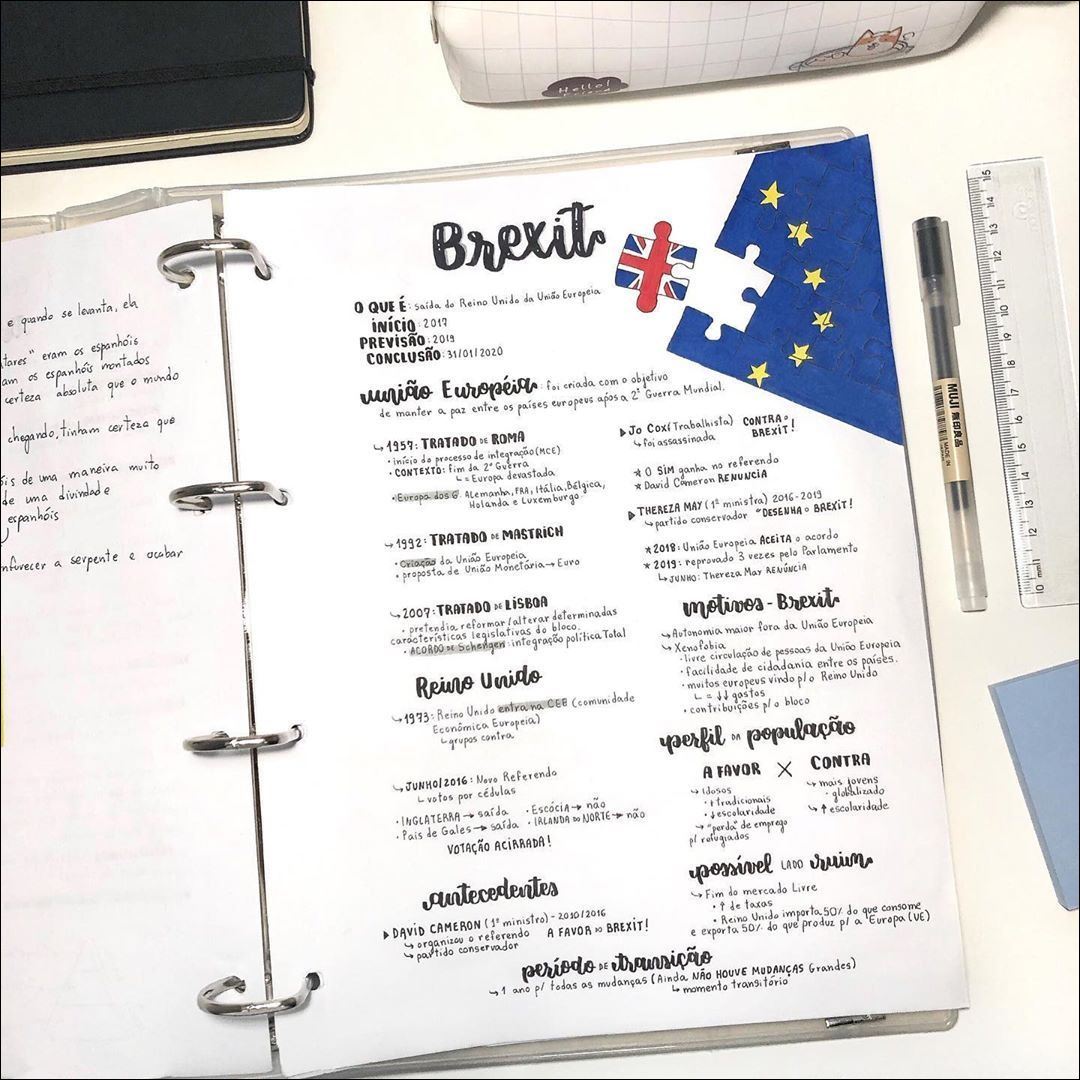 e quando se levanta, ela
tares" eram os espanhóis
am os espanhóis montados
certeza absoluta que o mundo
chegando, tinham certeza que
óis de uma maneira muito
de uma divindade
espanhóis
nfurecer a serpente e acabar
Hello!
Brexit
O QUE É: saída do Reino Unido da União Europeia
INÍCIO: 2017
PREVISÃO: 2019
CONCLUSÃO: 31/01/2020
União Européia: foi criada com o objetivo
de manter a paz entre os países europeus após a 2ª Guerra Mundial.
↳ 1957: TRATADO DE ROMA
• início do processo de integração (MCE)
• CONTEXTO: fim da 2ª Guerra
↳ = Europa devastada
• Europa dos 6: Alemanha, FRA, Itália, Bélgica,
Holanda e Luxemburgo
↳ 1992: TRATADO DE MASTRICH
• Criação da União Europeia
• proposta de União Monetária → Euro
↳ 2007: TRATADO DE LISBOA
• pretendia reformar/alterar determinadas
características legislativas do bloco.
• ACORDO DE Schengen: integração política Total
Reino Unido
↳ 1973: Reino Unido entra na CEE (comunidade
Econômica Europeia)
↳ grupos contra
↳ JUNHO/2016: Novo Referendo
↳ votos por cédulas
• INGLATERRA → saída • ESCÓCIA → não
• País de Gales → saída • IRLANDA DO NORTE → não
VOTAÇÃO ACIRRADA!
antecedentes
▸ DAVID CAMERON (1º ministro) - 2010/2016
↳ organizou o referendo A FAVOR DO BREXIT!
↳ partido conservador
▸ JO COX (Trabalhista) CONTRA O
BREXIT!
↳ foi assassinada
* O SIM ganha no referendo
* David Cameron RENUNCIA
▸ THEREZA MAY (1ª ministra) 2016-2019
↳ partido conservador "DESENHA O BREXIT!
* 2018: União Europeia ACEITA o acordo
* 2019: reprovado 3 vezes pelo Parlamento
↳ JUNHO: Thereza May RENÚNCIA
motivos - Brexit
↳ Autonomia maior fora da União Europeia
↳ Xenofobia
• livre circulação de pessoas da União Europeia
• facilidade de cidadania entre os países.
• muitos europeus vindo p/ o Reino Unido
↳ = ↓↓ gastos
• contribuições p/ o bloco
perfil DA população
A FAVOR X CONTRA
↳ idosos
• + tradicionais
• ↓ escolaridade
↳ "perda" de emprego
p/ refugiados
↳ mais jovens
• globalizado
↳ ↑ escolaridade
possível LADO ruim
↳ Fim do mercado Livre
• ↑ de taxas
• Reino Unido importa 50% do que consome
e exporta 50% do que produz p/ a Europa (UE)
período DE transição
↳ 1 ano p/ todas as mudanças (Ainda NÃO HOUVE MUDANÇAS Grandes)
↳ momento transitório
MUJI 無印良品
MADE IN
15
14
13
12
11
10
9
8
7
6
5